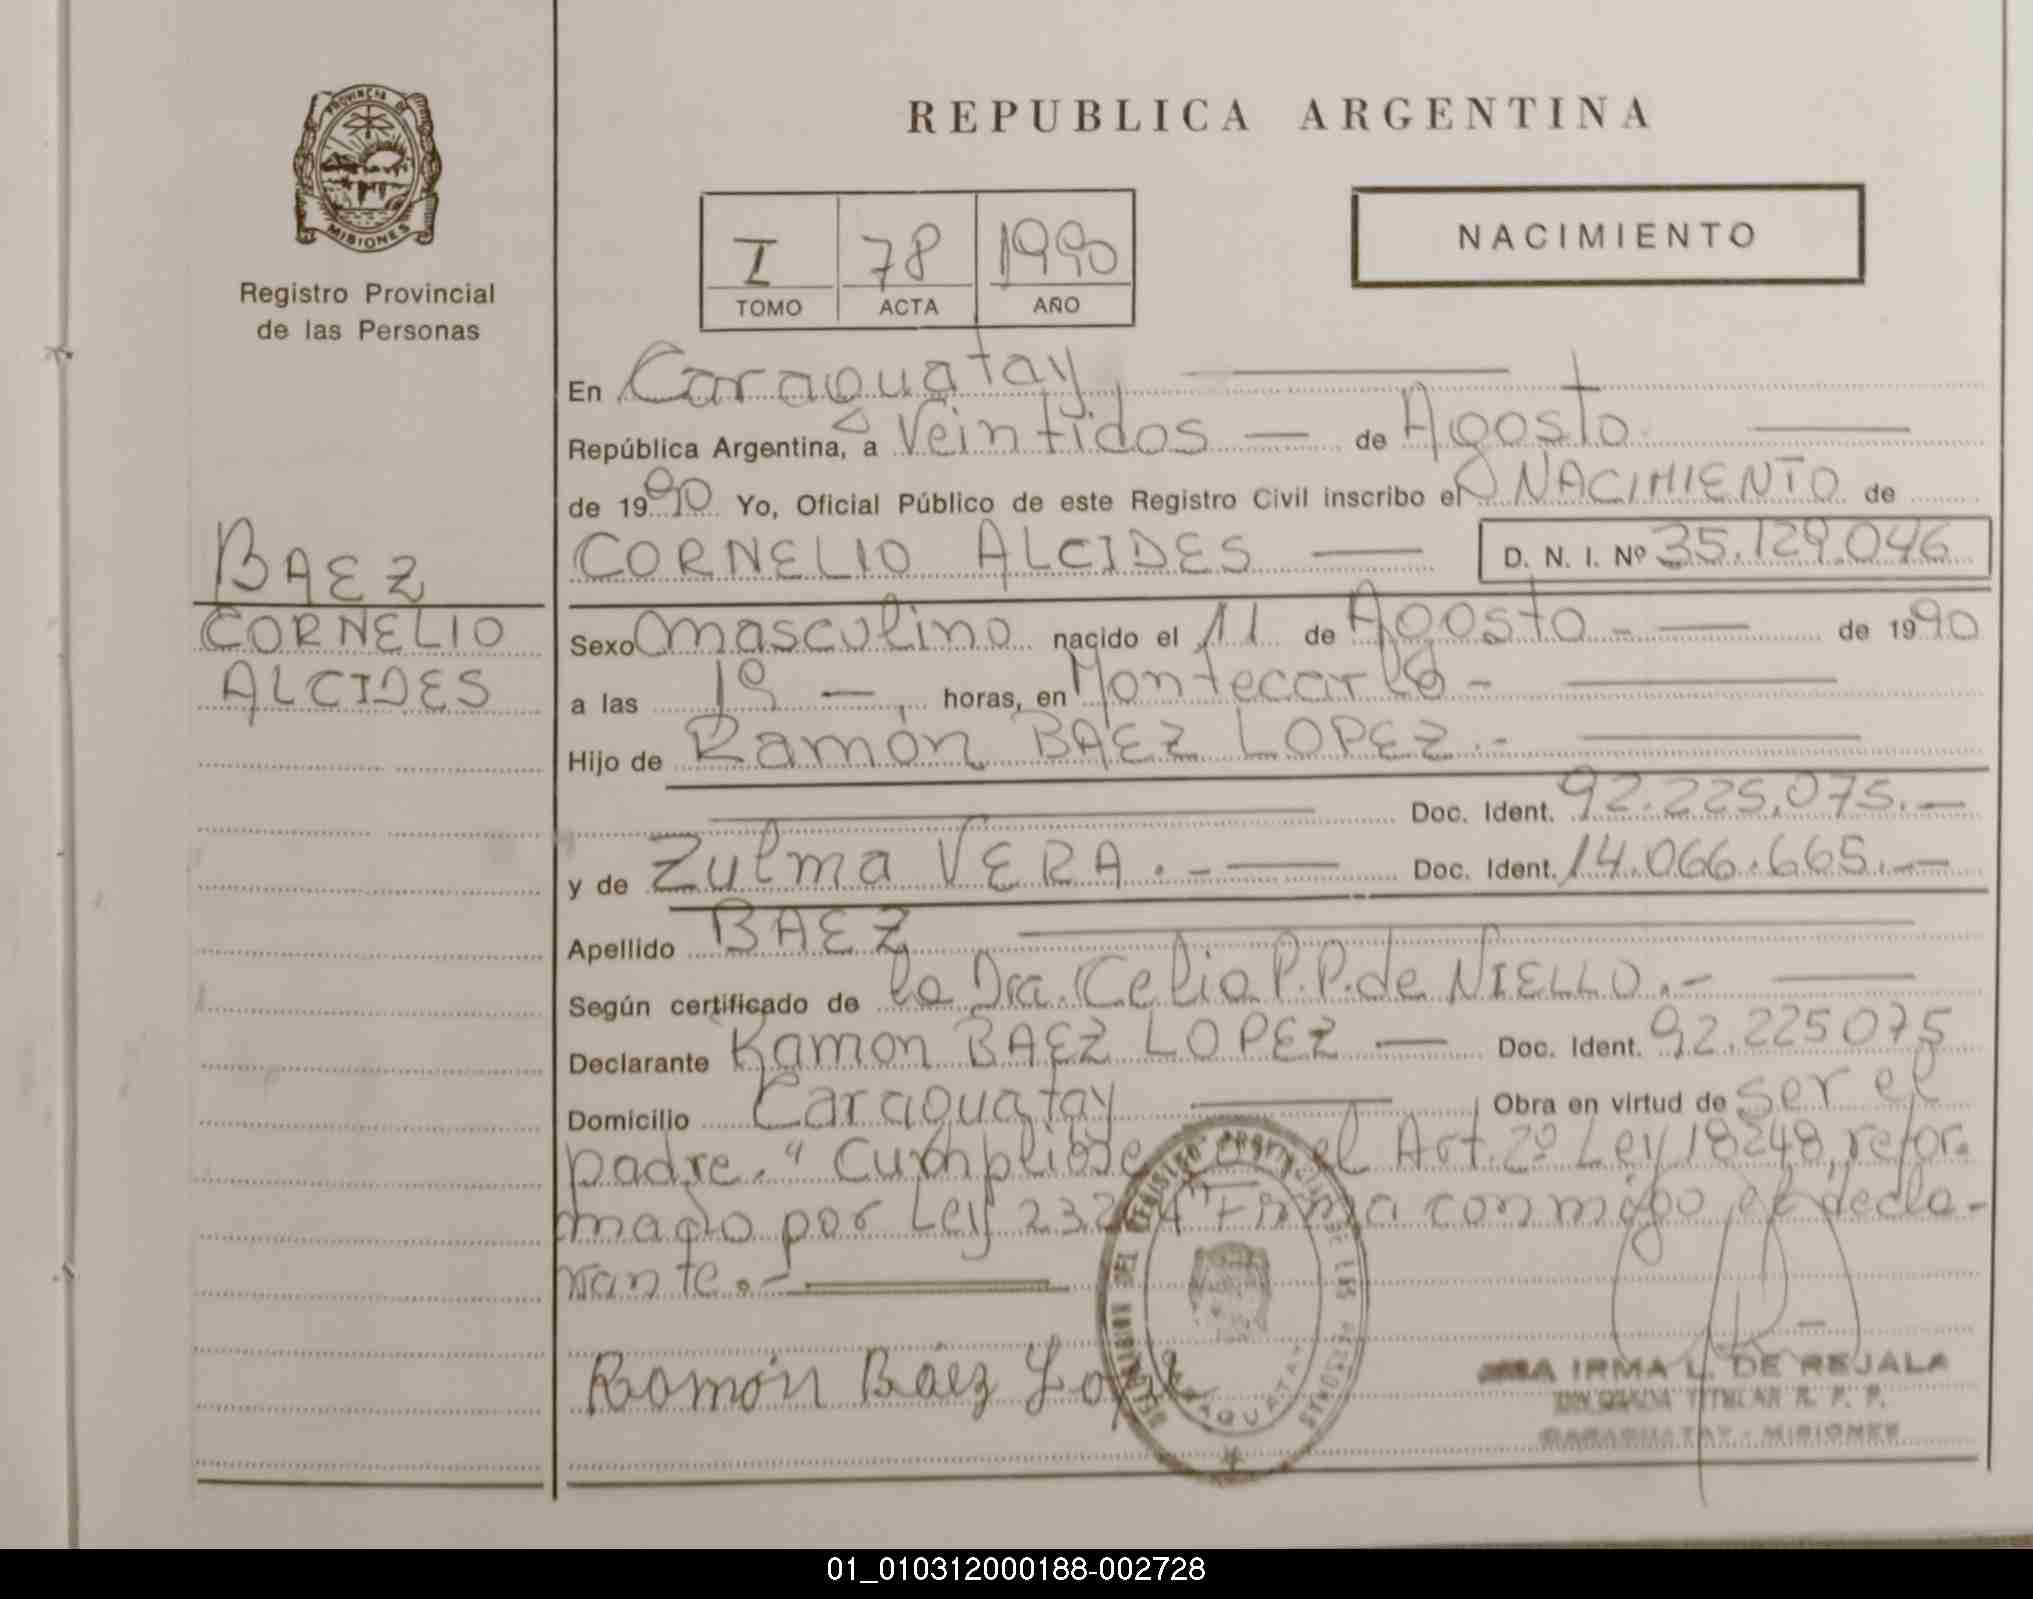 REPUBLICA ARGENTINA
PROVINCIA DE
MISIONES
Registro Provincial
de las Personas
I 78 1990
TOMO ACTA AÑO
NACIMIENTO
En Caraguatay
República Argentina, a Veintidos — de Agosto
de 1990 Yo, Oficial Público de este Registro Civil inscribo el NACIMIENTO de
CORNELIO ALCIDES — D. N. I. Nº 35.129.046
BAEZ
CORNELIO
ALCIDES
Sexo masculino nacido el 11 de Agosto.- — de 1990
a las 19 — horas, en Montecarlo -
Hijo de Ramón BAEZ LOPEZ.-
Doc. Ident. 92.225.075.—
y de Zulma VERA.- — Doc. Ident. 14.066.665.—
Apellido BAEZ
Según certificado de la Dra. Celia P.P. de NIELLO.-
Declarante Ramon BAEZ LOPEZ — Doc. Ident. 92.225075
Domicilio Caraguatay — Obra en virtud de ser el
padre. " Cumpliose con el Art. 2º Ley 18248, refor-
mado por Ley 23264" Firma conmigo el decla-
rante.-
Ramón Báez López
DEL REGISTRO PROVINCIAL DE LAS PERSONAS
CARAGUATAY
IRMA L. DE REJALA
TITULAR R. P. P.
CARAGUATAY - MISIONES
01_010312000188-002728